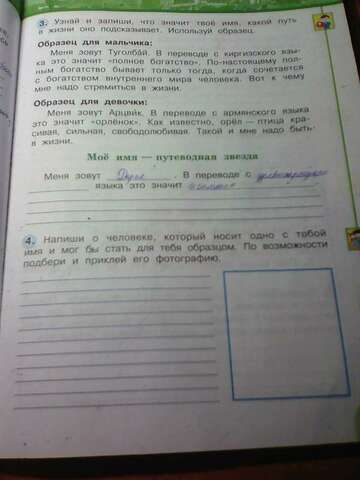 3. Узнай и запиши, что значит твоё имя, какой путь
в жизни оно подсказывает. Используй образец.
Образец для мальчика:
Меня зовут Туголбай. В переводе с киргизского язы-
ка это значит «полное богатство». По-настоящему пол-
ным богатство бывает только тогда, когда сочетается
с богатством внутреннего мира человека. Вот к чему
мне надо стремиться в жизни.
Образец для девочки:
Меня зовут Арцвик. В переводе с армянского языка
это значит «орлёнок». Как известно, орёл — птица кра-
сивая, сильная, свободолюбивая. Такой и мне надо быть
в жизни.
Моё имя — путеводная звезда
Меня зовут . В переводе с
языка это значит
4. Напиши о человеке, который носит одно с тобой
имя и мог бы стать для тебя образцом. По возможности
подбери и приклей его фотографию.